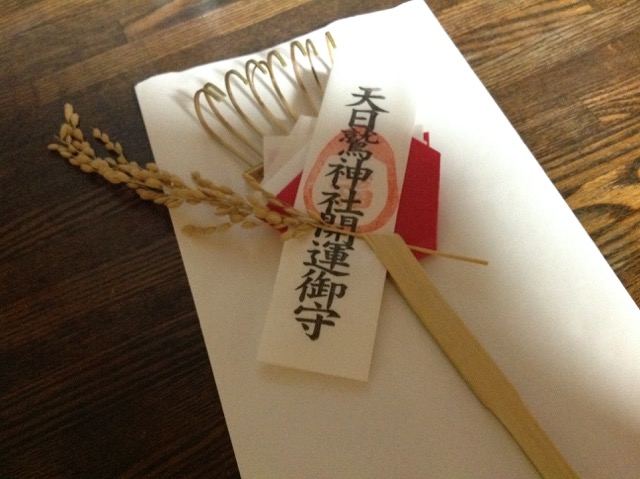 天日鷲神社開運御守